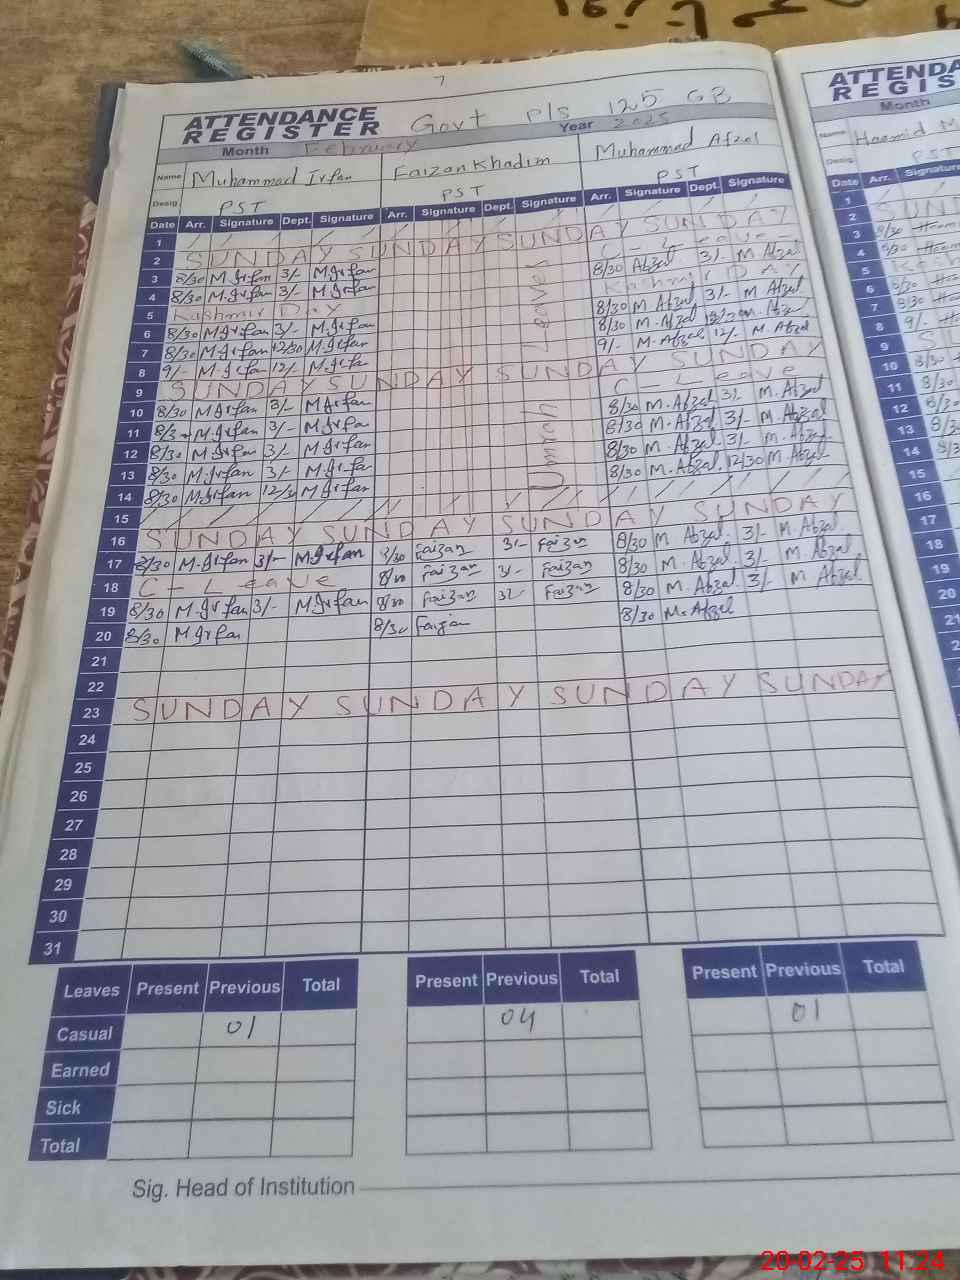 7
ATTENDANCE REGISTER Govt P/S 125 GB
Month February Year 2025
Name Muhammad Irfan Faizan Khadim Muhammad Afzal
Desig. PST PST PST
Date Arr. Signature Dept. Signature Arr. Signature Dept. Signature Arr. Signature Dept. Signature
1
2 SUNDAY SUNDAY SUNDAY SUNDAY
3 8/30 M.Irfan 3/- M.Irfan C - Leave
4 8/30 M.Irfan 3/- M.Irfan 8/30 Afzal 3/- M Afzal
5 Kashmir Day Kashmir Day
6 8/30 M.Irfan 3/- M.Irfan 8/30 M. Afzal 3/- M Afzal
7 8/30 M.Irfan 12/30 M.Irfan 8/30 M. Afzal
8 9/- M.Irfan 12/- M.Irfan 9/- M. Afzal 12/- M. Afzal
9 SUNDAY SUNDAY SUNDAY SUNDAY
10 8/30 M.Irfan 3/- M.Irfan C - Leave
11 M.Irfan 3/- M.Irfa 8/30 M. Afzal 3/- M. Afzal
12 8/30 M.Irfan 3/- M.Irfan 8/30 M. Afzal 3/- M. Afzal
13 8/30 M.Irfan 3/- M.Irfan 8/30 M. Afzal 3/- M. Afzal
14 8/30 M.Irfan M.Irfan 8/30 M. Afzal 12/30 M. Afzal
15
16 SUNDAY SUNDAY SUNDAY SUNDAY
17 8/30 M.Irfan 3/- M.Irfan 8/30 Faizan 3/- Faizan 8/30 M Afzal. 3/- M. Afzal.
18 C - Leave Faizan 3/- Faizan 8/30 M. Afzal. 3/- M. Afzal
19 8/30 M.Irfan 3/- M.Irfan 8/30 Faizan Faizan 8/30 M. Afzal. 3/- M Afzal
20 8/30 M Irfan 8/30 Faizan 8/30 M. Afzal
21
22
23 SUNDAY SUNDAY SUNDAY SUNDAY
24
25
26
27
28
29
30
31
Leaves Present Previous Total Present Previous Total Present Previous Total
Casual 01 04 01
Earned
Sick
Total
Sig. Head of Institution
ATTENDA
REGIS
Month
Name
Desig. PST
Date Arr. Signature
1
2
3 8/30
4 9/30
5
6 8/30
7 8/30
8 9/-
9
10 8/30
11 8/30
12 8/30
13
14
15
16
17
18
19
20
21
20-02-25 11:24